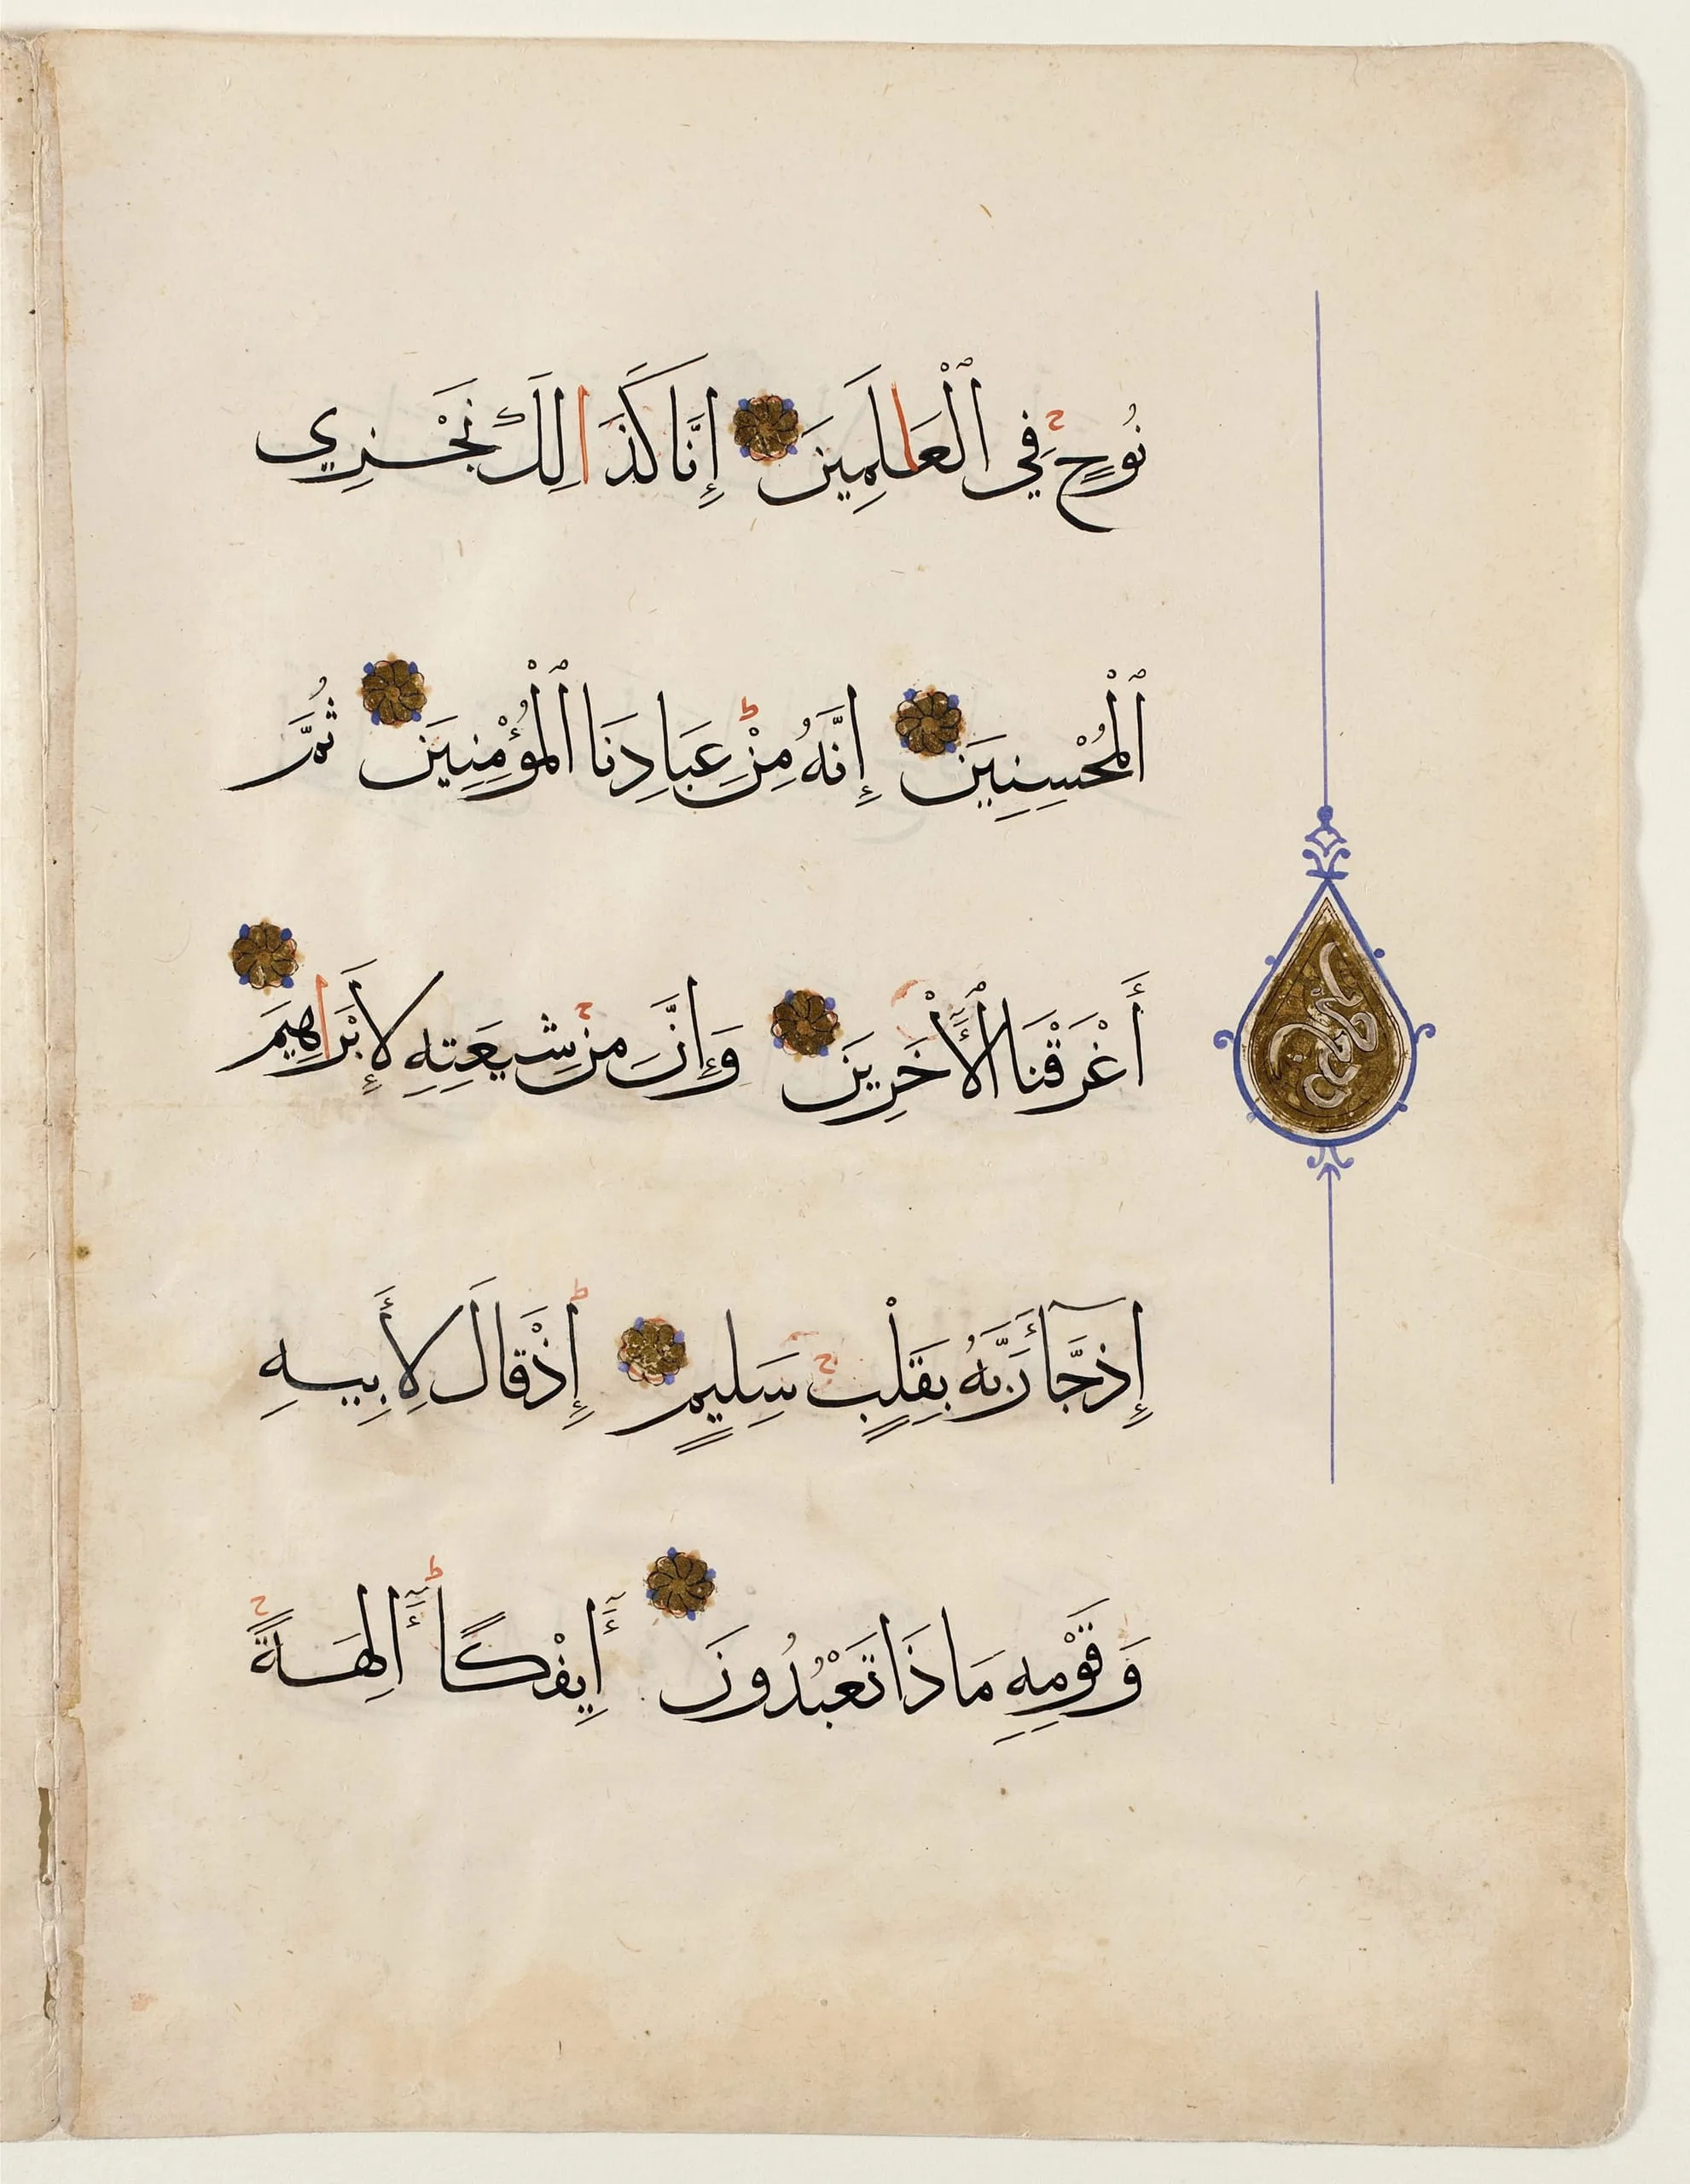 نُوحٍ فِي ٱلْعَالَمِينَ إِنَّا كَذَالِكَ نَجْزِي
ٱلْمُحْسِنِينَ إِنَّهُ مِنْ عِبَادِنَا ٱلْمُؤْمِنِينَ ثُمَّ
أَغْرَقْنَا ٱلْأَخَرِينَ وَإِنَّ مِن شِيعَتِهِ لَإِبْرَاهِيمَ
إِذ جَّآ رَبَّهُ بِقَلْبٍ سَلِيمٍ إِذْ قَالَ لِأَبِيهِ
وَقَوْمِهِ مَاذَا تَعْبُدُونَ أَيِفْكًا أَالِهَةً